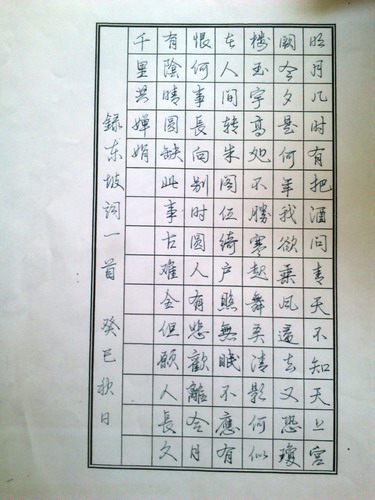 明月几时有把酒问青天不知天上宫
阙今夕是何年我欲乘风归去又恐瓊
楼玉宇高处不勝寒起舞弄清影何似
在人间转朱阁低绮户照無眠不應有
恨何事長向别时圆人有悲歡離合月
有陰晴圆缺此事古難全但願人長久
千里共嬋娟
録东坡词一首 癸巳秋日